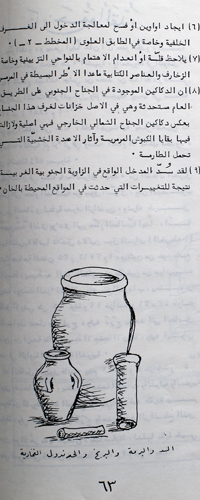 (٦) ايجاد اواوين اوفسح لمعالجة الدخول الى الغرف
الخلفية وخاصة في الطابق العلوي (المخطط - ٢ -) ٠
(٧) يلاحظ قلة او انعدام الاهتمام بالنواحي التزيينية وخاصة
الزخارف والعناصر الكتابية ماعدا الاطر البسيطة في
(٨) ان الدكاكين الموجودة في الجناح الجنوبي على الطريق
العام مستحدثة وهي في الاصل خزانات لغرف هذا
بعكس دكاكين الجناح الشمالي الخارجي فهي اصلية ولازالت
فيها بقايا الكبوش المرمرية وآثار الاعمدة الخشبية التي
تحمل الطارمة ٠
(٩) لقد سد المدخل الواقع في الزاوية الجنوبية الغربية
نتيجة للتغييرات التي حدثت في المواقع المحيطة بالخان ٠
والبرمة والبربخ الفخارية
٦٣